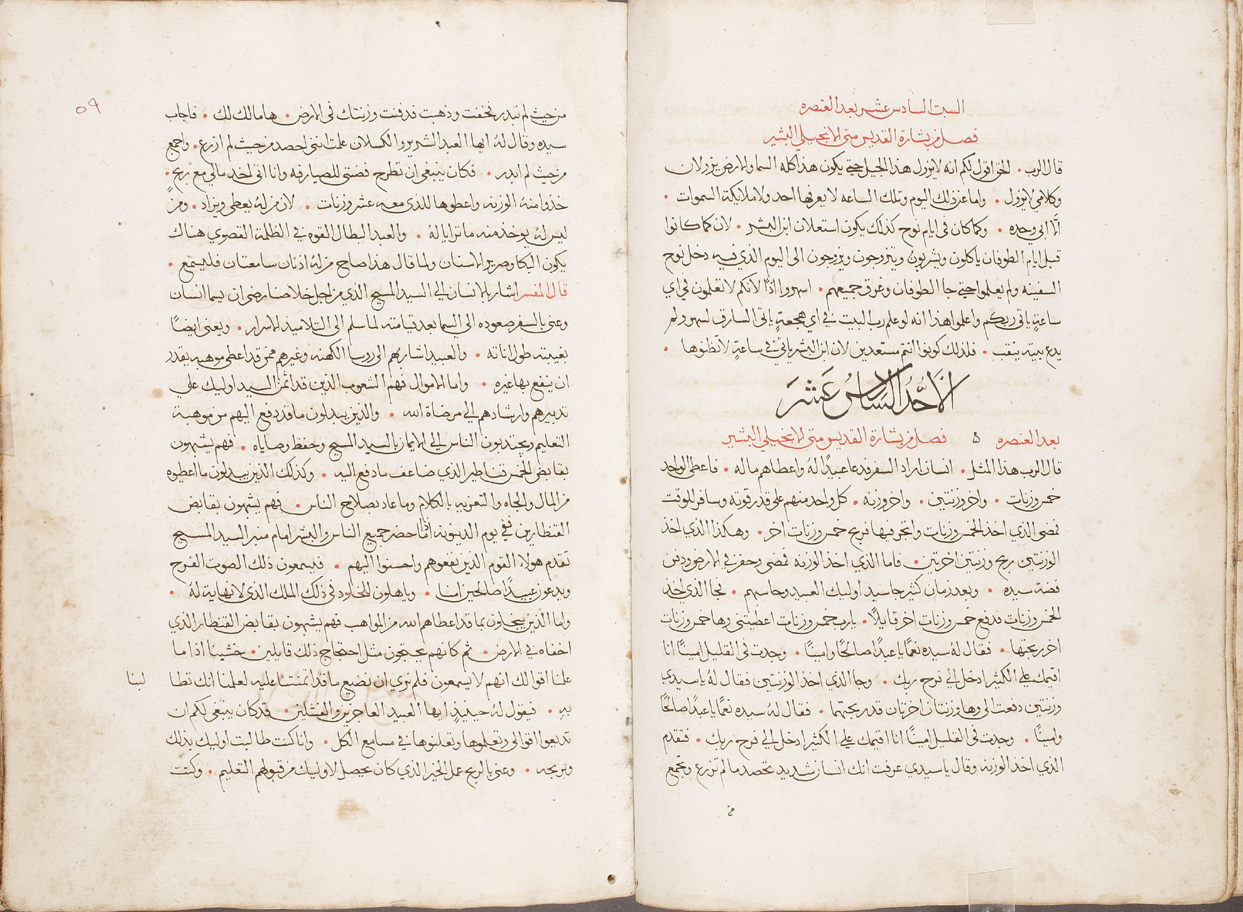 السبت السادس عشر بعد العنصره
فصل من بشارة القديس متى الانجيلي البشير
قال الرب • الحق اقول لكم انه لايزول هذا الجيل حتى يكون هذا كله السما والارض يزولان
وكلامي لايزول • واما عن ذلك اليوم وتلك الساعه لا يعرفها احد ولا ملايكة السموات •
الّا ابي وحده • وكما كان في ايام نوح كذلك يكون استعلان ابن البشر • لان كما كانوا
قبل ايام الطوفان ياكلون ويشربون ويتزوجون ويزوجون الى اليوم الذي فيه دخل نوح
السفينه ولم يعلموا حتى جا الطوفان وغرق جميعهم • اسهروا اذًا لانكم لا تعلمون في اي
ساعةٍ ياتي ربكم واعلموا هذا انه لو علم رب البيت في اي هجعةٍ ياتي السارق لسهر ولم
يدع بيته ينقب • فلذلك كونوا انتم مستعدين لان ابن البشر ياتي في ساعةٍ لا تظنوها •
الاحد السادس عشر
بعد العنصره ۵ فصل من بشارة القديس متى الانجيلي البشير
قال الرب هذا المثل • انسان اراد السفر فدعا عبيدًا له واعطاهم ماله • فاعطى الواحد
خمس وزنات • واخر وزنتين • واخر وزنه • كل واحد منهم على قدر قوته وسافر للوقت
فمضى الذي اخذ الخمس وزنات واتجر فيها فربح خمس وزنات اخر • وهكذا الذي اخذ
الوزنتين ربح وزنتين اخرتين • فاما الذي اخذ الوزنه فمضى وحفر في الارض ودفن
فضة سيده • وبعد زمان كثير جا سيد اوليك العبيد وحاسبهم • فجا الذي اخذ
الخمس وزنات فدفع خمس وزنات اخر قايلًا • يارب خمس وزنات اعطيتني وها خمس وزنات
اخر ربحتها • فقال له سيده نعمًا يا عبدًا صالحًا وامينًا • وجدت في القليل امينًا انا
اقيمك على الكثير ادخل الى فرح ربك • وجا الذي اخذ الوزنتين فقال له يا سيدي
وزنتين دفعت لي وها وزنتان اخرتان قد ربحتهما • فقال له سيده نعمًا يا عبدًا صالحًا
وامينًا • وجدت في القليل امينًا انا اقيمك على الكثير ادخل الى فرح ربك • فتقدم
الذي اخذ الوزنه وقال يا سيدي عرفت انك انسان شديد تحصد ما لم تزرع وتجمع
من
٥٩
من حيث لم تبدر فخفت وذهبت فدفنت وزنتك في الارض • ها مالك لك • فاجاب
سيده وقال له ايها العبد الشرير والكسلان علمت انني احصد من حيث لم ازرع • واجمع
من حيث لم ابدر • فكان ينبغي ان تطرح فضتي للصيارفه وانا اتي اخذ مالي مع ربحٍ •
خذوا منه الوزنه واعطوها للذي معه عشر وزنات • لان من له يعطى ويزاد • ومن
ليس له يوخذ منه ما ترايا له • والعبد البطال القوه في الظلمة القصوي هناك
يكون البكا وصرير الاسنان ولما قال هذا صاح من له اذنان سامعتان فليسمع •
قال المفسر اشار بالانسان الى السيد المسيح الذي من اجل خلاصنا رضي ان يسما انسان
وعنى بالسفر صعوده الى السما بعد قيامته لما سلم الى التلاميذ الاسرار • ويعني ايضًا
بغيبته طول اناته • والعبيد اشار بهم الى روسا الكهنه وغيرهم ممن قد اعطى موهبه يقدر
ان ينفع بها غيره • واما الاموال فهم الشعوب الذين قد ائتمن السيد اوليك على
تدبيرهم وارشادهم الى مرضاة الله • والذين يبدلون ما قد دفع اليهم من موهبة
التعليم ويجتدبون الناس الى الايمان بالسيد المسيح وحفظ وصاياه • فهم يشبهون
بقابض الخمس قناطير الذي ضاعف ما دفع اليه • وكذلك الذين يبدلون ما اعطوه
من المال والجاه والتعزيه بالكلام وما عاد بصلاح الناس • فهم يشبهون بقابض
القنطارين ففي يوم الدينونه اذا حضر جميع الناس والبشر امام منبر السيد المسيح
تقدم هولاء القوم الذين نفعوهم واحسنوا اليهم • فيسمعون ذلك الصوت الفرح
ويدعون عبيدًا صالحين امنا • ويأهلون للخلود في ذلك الملك الذي لا نهاية له •
واما الذين يبخلون بما قد اعطاهم الله من المواهب فهم يشبهون بقابض القنطار الذي
اخفاه في الارض • ثم كانهم يحتجون مثل احتجاج ذلك قايلين • خشينا اذا ما
علمنا اقوالك انهم لا يسمعون فلم نري ان نضيع ما قد ائتمنتنا عليه لعلمنا انك تطا
لبنا
بهِ • فيقول له حينيذٍ ايها العبيد العاجزين والفشلين • قد كان ينبغي لكم ان
تذيعوا اقوالي وتعلموها وتعلنوها في مسامع الكل • وانا كنت طالبت اوليك بذلك
وبربحه • وعنى بالربح عمل الخير الذي كان يحصل لاوليك من قبولهم التعليم • وكنت